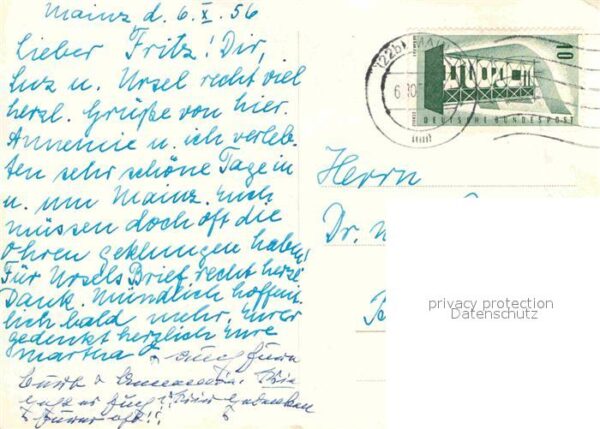 Mainz d. 6. X. 56
Lieber Fritz! Dir,
Luz u. Ursel recht viel
herzl. Grüße von hier.
Annemie u. ich verleb-
ten sehr schöne Tage in
u. um Mainz. Euch
müssen doch oft die
Ohren geklungen haben!
Für Ursels Brief recht herzl.
Dank. Mündlich hoffent-
lich bald mehr. Eurer
gedenkt herzlich Eure
Martha
(22b) MAI
6.10
10
DEUTSCHE BUNDESPOST
Herrn
Dr.
privacy protection
Datenschutz